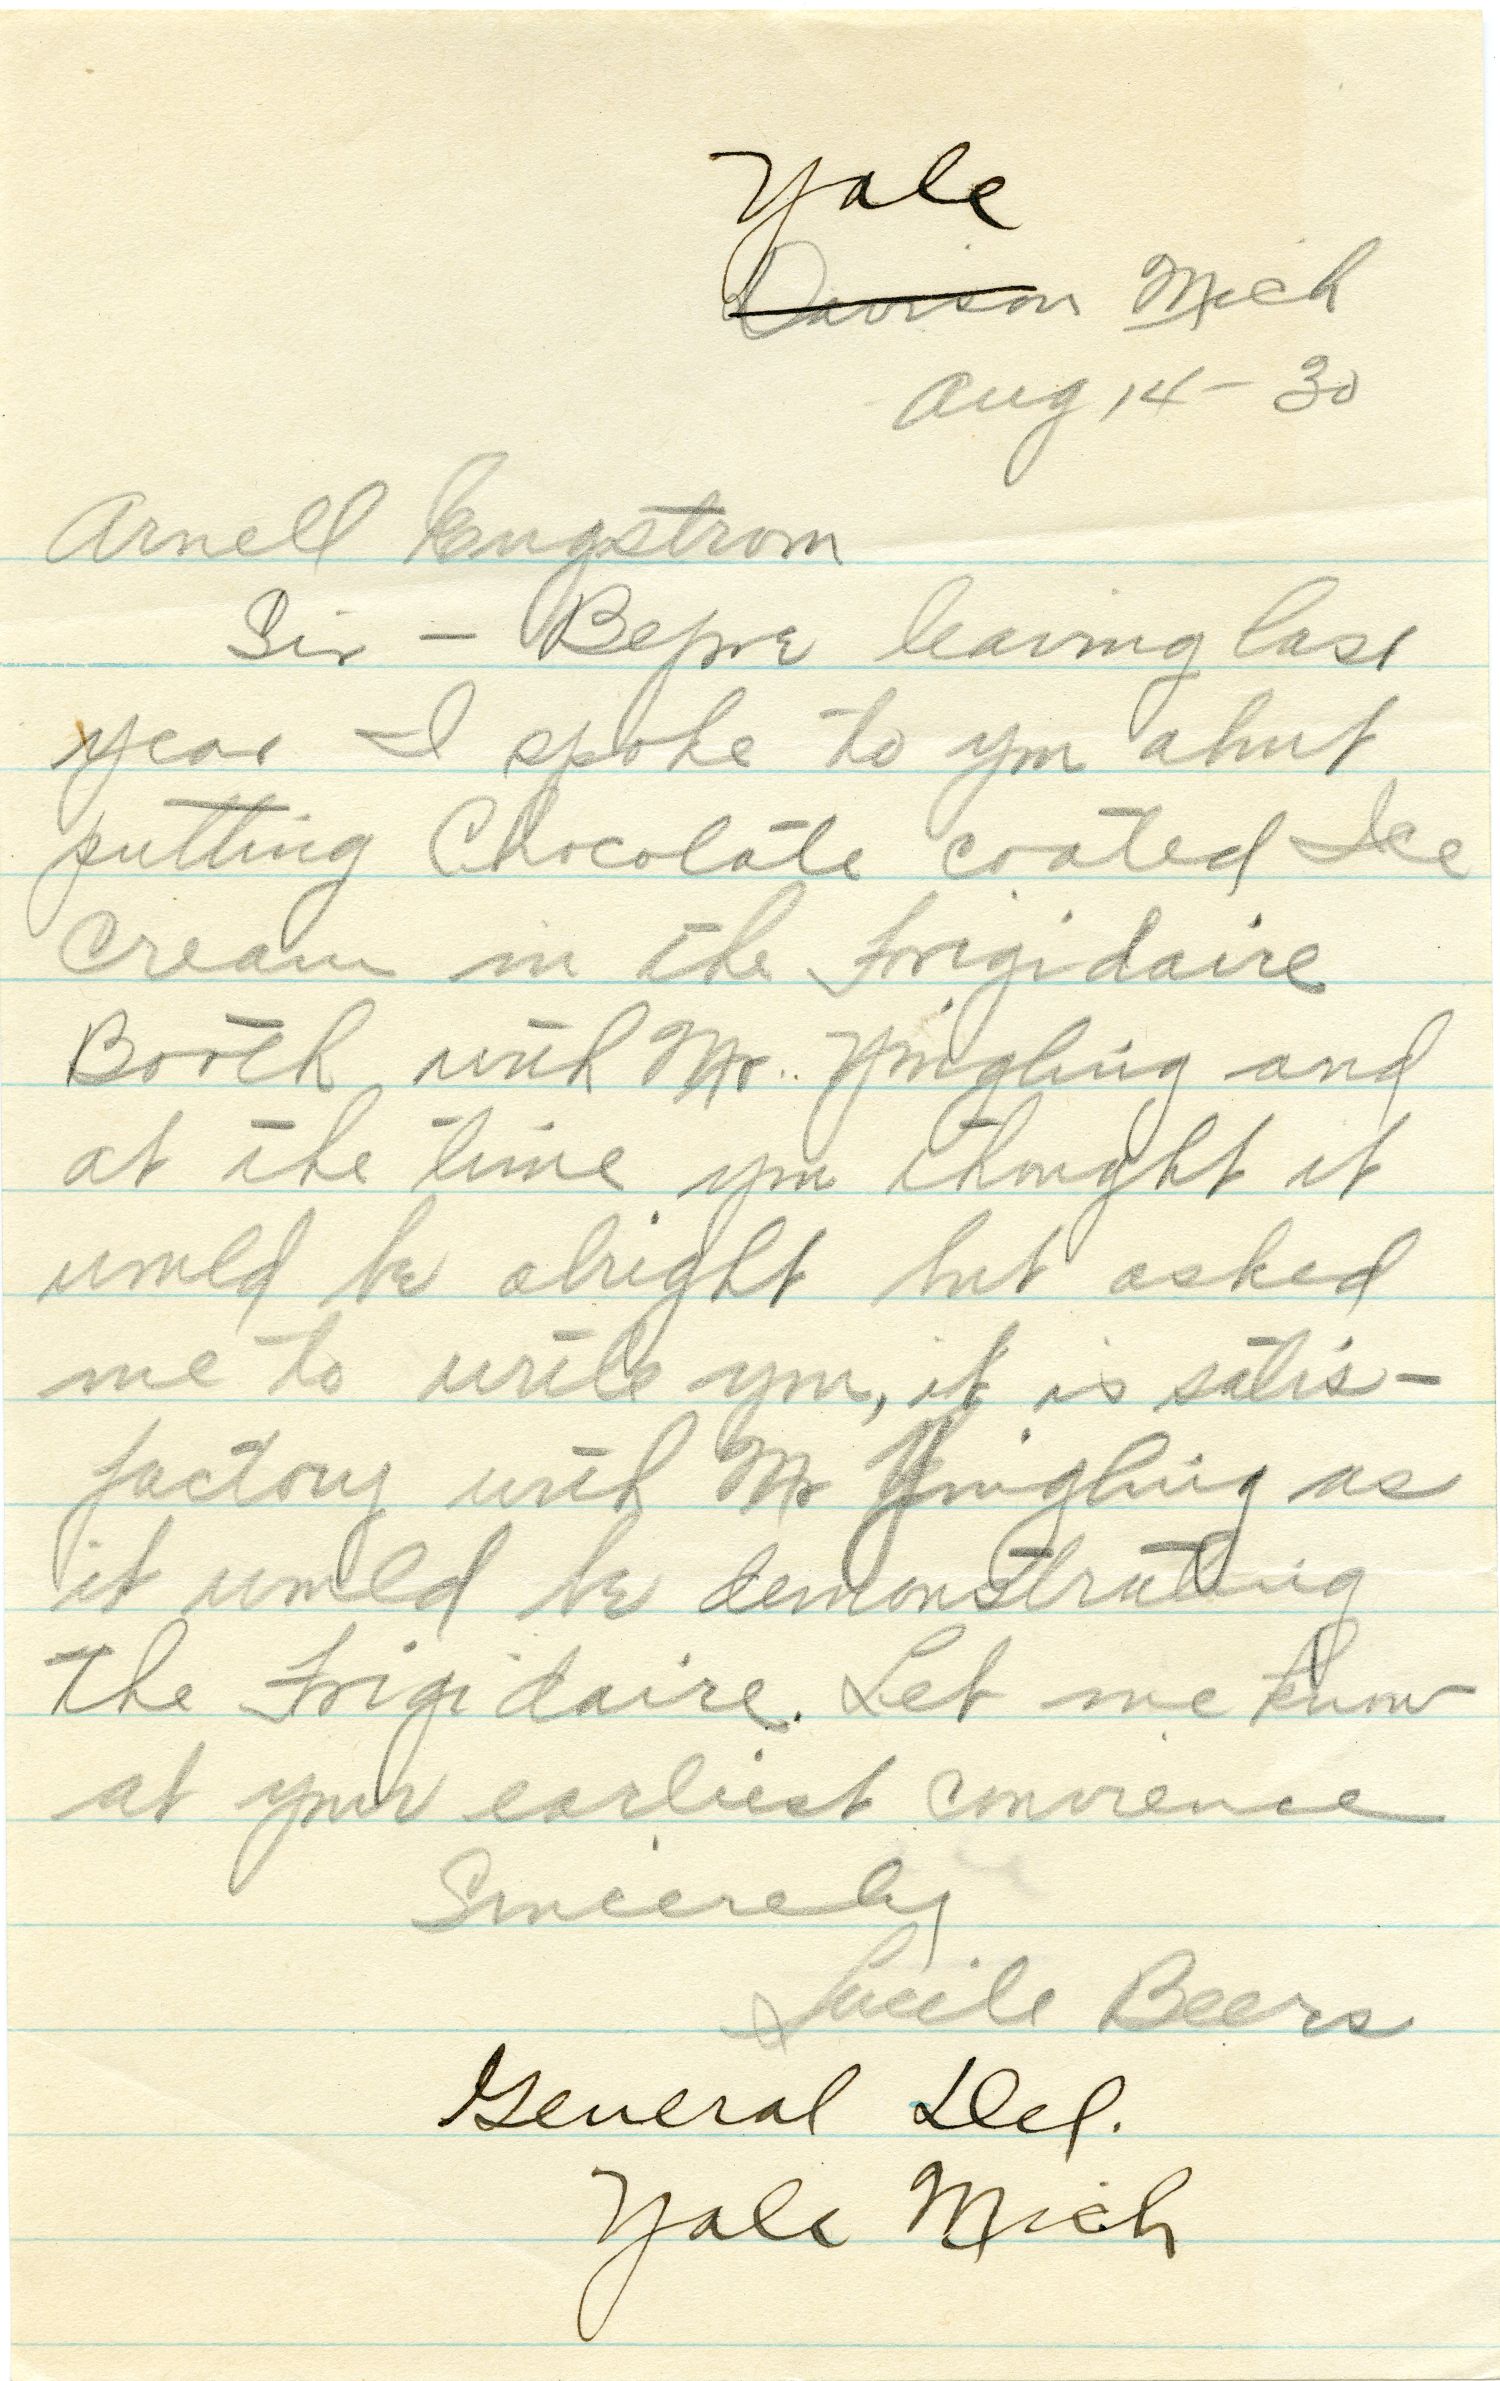 Yale
Davison Mich
Aug 14 - 30
Arnell Engstrom
Sir - Before leaving last
year I spoke to you about
putting Chocolate coated Ice
Cream in the Frigidaire
Booth with Mr. Yingling and
at the time you thought it
would be alright but asked
me to write you, it is satis-
factory with Mr Yingling as
it would be demonstrating
the Frigidaire. Let me know
at your earliest convience
Sincerely
Lucile Beers
General Del.
Yale Mich